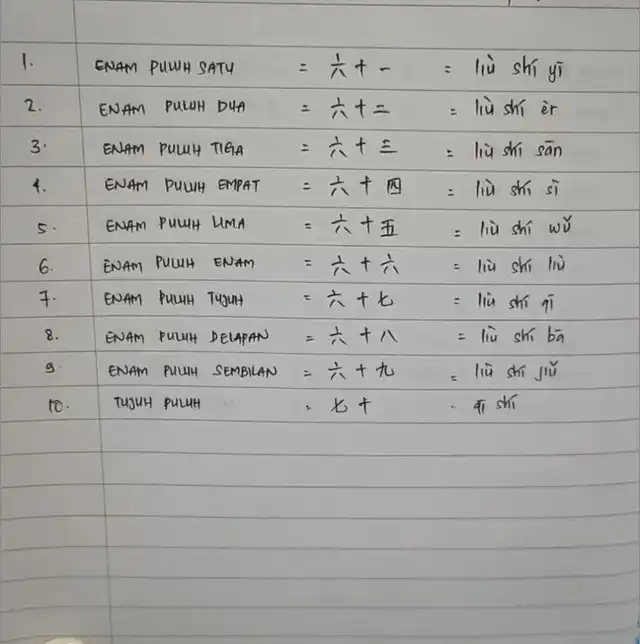 1. ENAM PULUH SATU = 六十一 = liù shí yī
2. ENAM PULUH DUA = 六十二 = liù shí èr
3. ENAM PULUH TIGA = 六十三 = liù shí sān
4. ENAM PULUH EMPAT = 六十四 = liù shí sì
5. ENAM PULUH LIMA = 六十五 = liù shí wǔ
6. ENAM PULUH ENAM = 六十六 = liù shí liù
7. ENAM PULUH TUJUH = 六十七 = liù shí qī
8. ENAM PULUH DELAPAN = 六十八 = liù shí bā
9. ENAM PULUH SEMBILAN = 六十九 = liù shí jiǔ
10. TUJUH PULUH = 七十 = qī shí